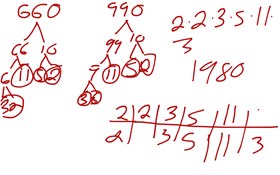 660 990
2·2·3·5·11·
66 10 99 10
3
6 11 5 2 9 11 5 2
1980
3 2 3 3
2 | 2 | 3 | 5 | 11 | .
2 | | 3 | 5 | 11 | 3